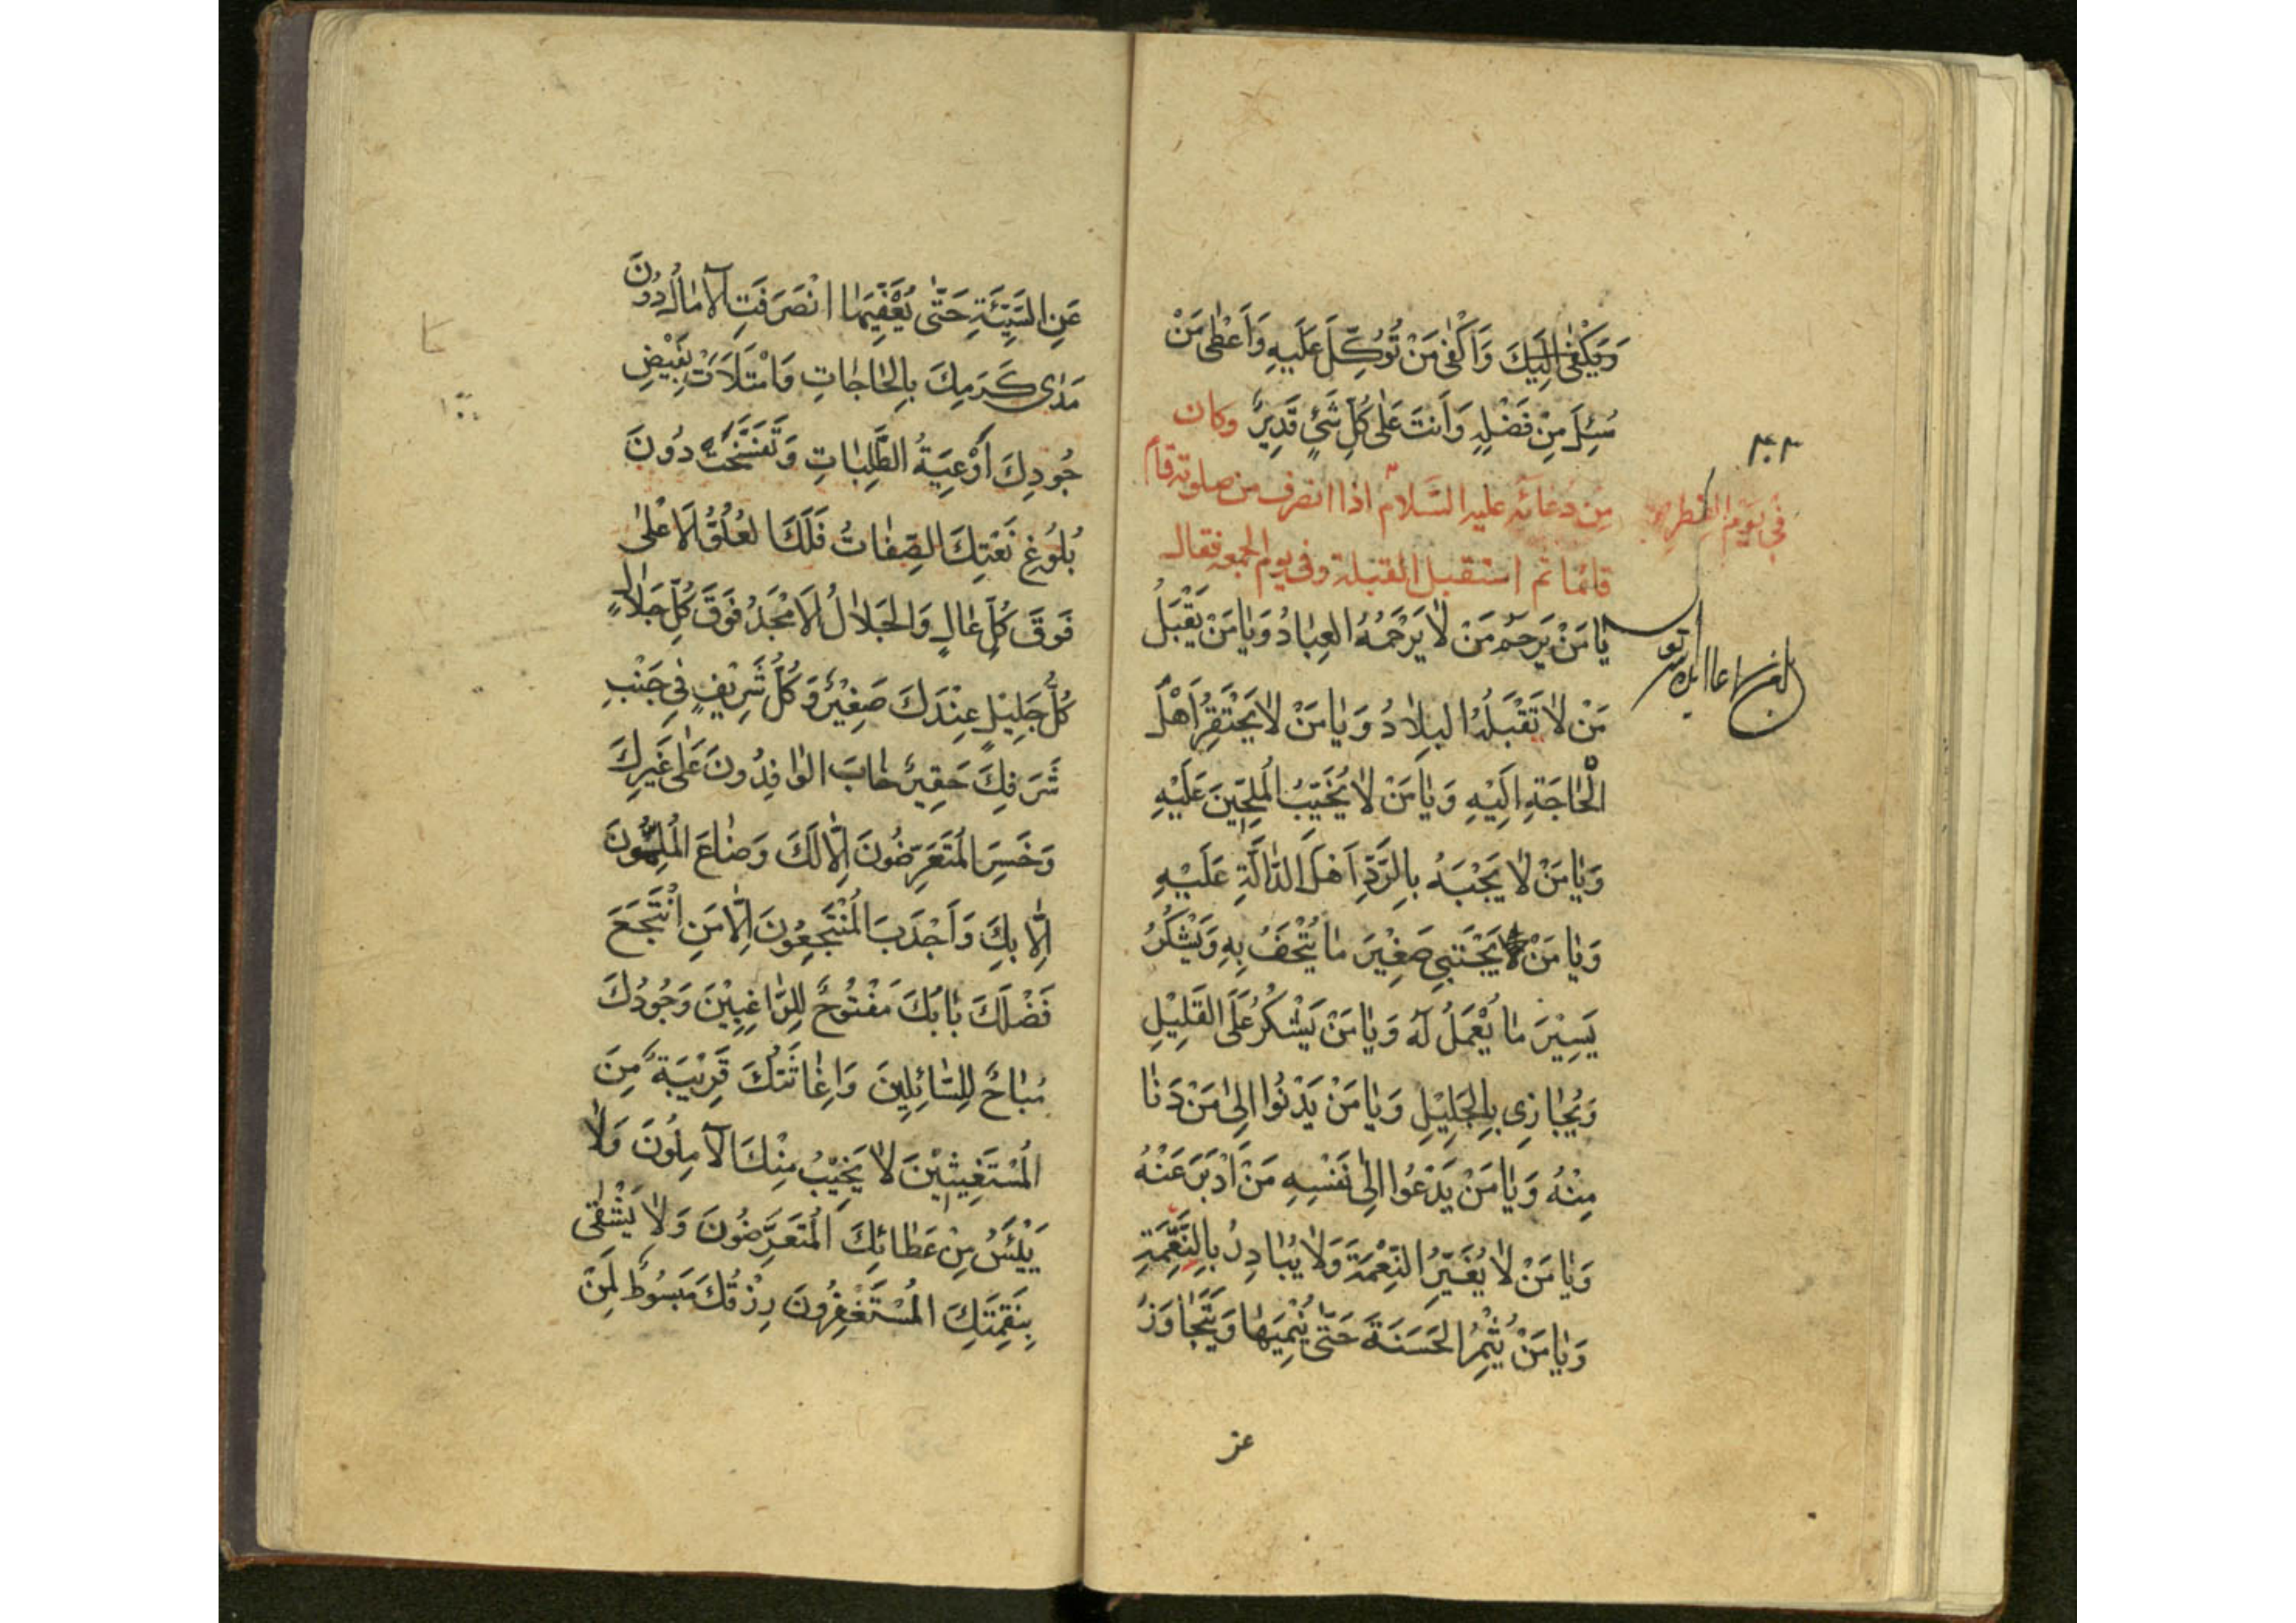 وَيَكْفَى إِلَيْكَ وَأَكْفَى مَنْ تُوُكِّلَ عَلَيهِ وَأَعْطَى مَنْ
سُئِلَ مِنْ فَضْلِهِ وَأَنتَ عَلَى كُلِّ شَيْءٍ قَدِيرٌ وكان
من دعائه عليه السلام اذا انصرف من صلوته قام
قائما ثم استقبل القبلة وفي يوم الجمعه فقال
يَا مَنْ يَرحَمُ مَنْ لَا يَرْحَمُهُ العِبَادُ وَيَا مَنْ يَقْبَلُ
مَنْ لَا تَقْبَلُهُ البِلَادُ وَيَا مَنْ لَا يَحْتَقِرُ أَهْلَ
الْحَاجَةِ اِلَيْهِ وَيَا مَنْ لَا يُخَيِّبُ المُلِحِّينَ عَلَيْهِ
وَيَا مَنْ لَا يَجْبَهُ بِالرَّدِّ أَهْلَ الدَّالَّةِ عَلَيْهِ
وَيَا مَنْ يَجْتَبِي صَغِيْرَ مَا يُتْحَفُ بِهِ وَيَشْكُرُ
يَسِيْرَ مَا يُعْمَلُ لَهُ وَيَا مَنْ يَشْكُرُ عَلَى القَلِيْلِ
وَيُجَازِي بِالجَلِيْلِ وَيَا مَنْ يَدْنُوا اِلَى مَنْ دَنَا
مِنْهُ وَيَا مَنْ يَدْعُوا اِلَى نَفْسِهِ مَنْ اَدْبَرَ عَنْهُ
وَيَا مَنْ لَا يُغَيِّرُ النِّعْمَةَ وَلَا يُبَادِرُ بِالنَّقِمَةِ
وَيَا مَنْ يُثْمِرُ الحَسَنَةَ حَتَّى يُنْمِيَهَا وَيَتَجَاوَزُ
عن
٣٠٣
في يوم الفطر
عَنِ السَّيِّئَةِ حَتَّى يُعَفِّيَهَا انْصَرَفَتِ الآمَالُ دُونَ
مَدَى كَرَمِكَ بِالحَاجَاتِ وَامْتَلَأَتْ بِفَيْضِ
جُودِكَ أَوْعِيَةُ الطَّلِبَاتِ وَتَفَسَّخَتْ دُونَ
بُلُوغِ نَعْتِكَ الصِّفَاتُ فَلَكَ العُلُوُّ الاَعْلَى
فَوقَ كُلِّ عَالٍ وَالجَلَالُ الاَمْجَدُ فَوقَ كُلِّ جَلَالٍ
كُلُّ جَلِيْلٍ عِنْدَكَ صَغِيْرٌ وَكُلُّ شَرِيفٍ فِي جَنْبِ
شَرَفِكَ حَقِيرٌ خَابَ الوَافِدُونَ عَلَى غَيرِكَ
وَخَسِرَ المُتَعَرِّضُونَ اِلَّا لَكَ وَضَاعَ المُلِمُّونَ
اِلَّا بِكَ وَأَجْدَبَ المُنْتَجِعُونَ اِلَّا مَنِ انْتَجَعَ
فَضْلَكَ بَابُكَ مَفْتُوحٌ لِلرَّاغِبِيْنَ وَجُودُكَ
مُبَاحٌ لِلسَّائِلِينَ وَاِغَاثَتُكَ قَرِيْبَةٌ مِنَ
المُسْتَغِيثِيْنَ لَا يَخِيْبُ مِنْكَ الآمِلُونَ وَلَا
يَيْئَسُ مِنْ عَطَائِكَ المُتَعَرِّضُونَ وَلَا يَشْقَى
بِنَقِمَتِكَ المُسْتَغْفِرُونَ رِزْقُكَ مَبسُوطٌ لِمَنْ